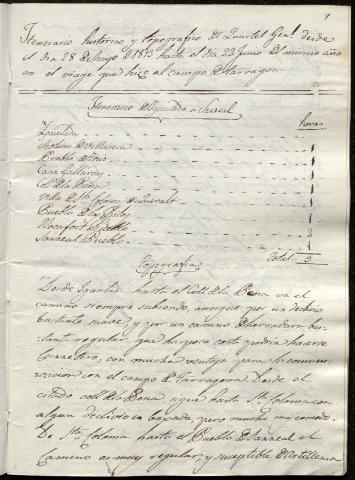 1
Itinerario historico y topografico del Quartel Genl. desde
el dia 28 de Mayo de 1813 hasta el dia 23 Junio del mismo año
en el viage que hizo al campo de Tarragona.
Itinerario de Igualada a Sarreal
horas
Igualada
Molino de Villanova 1
Pueblo de
Casa Gallardas 1
Coll de la Pena 1
Villa de Sta. Coloma de Queralt 1
Pueblo de las Pilas 1
Rocafort Pueblo 2
Sarreal Pueblo 1
Total 9
Topografia
Desde Igualada hasta el Coll de la Pena va el
camino siempre subiendo, aunque por un declivio
bastante suave, y por un camino de herradura bas-
tante regular que ha poca costa podria hacerse
Carretero, con mucha ventaja para la comuni-
cacion con el campo de Tarragona. Desde el
citado coll de la Pena, sigue hasta Sta. Coloma con
algun declivio en bajada, pero mucho mas comodo.
De Sta. Coloma hasta el Pueblo de Sarreal el
Camino es muy regular, y suceptible de Artilleria